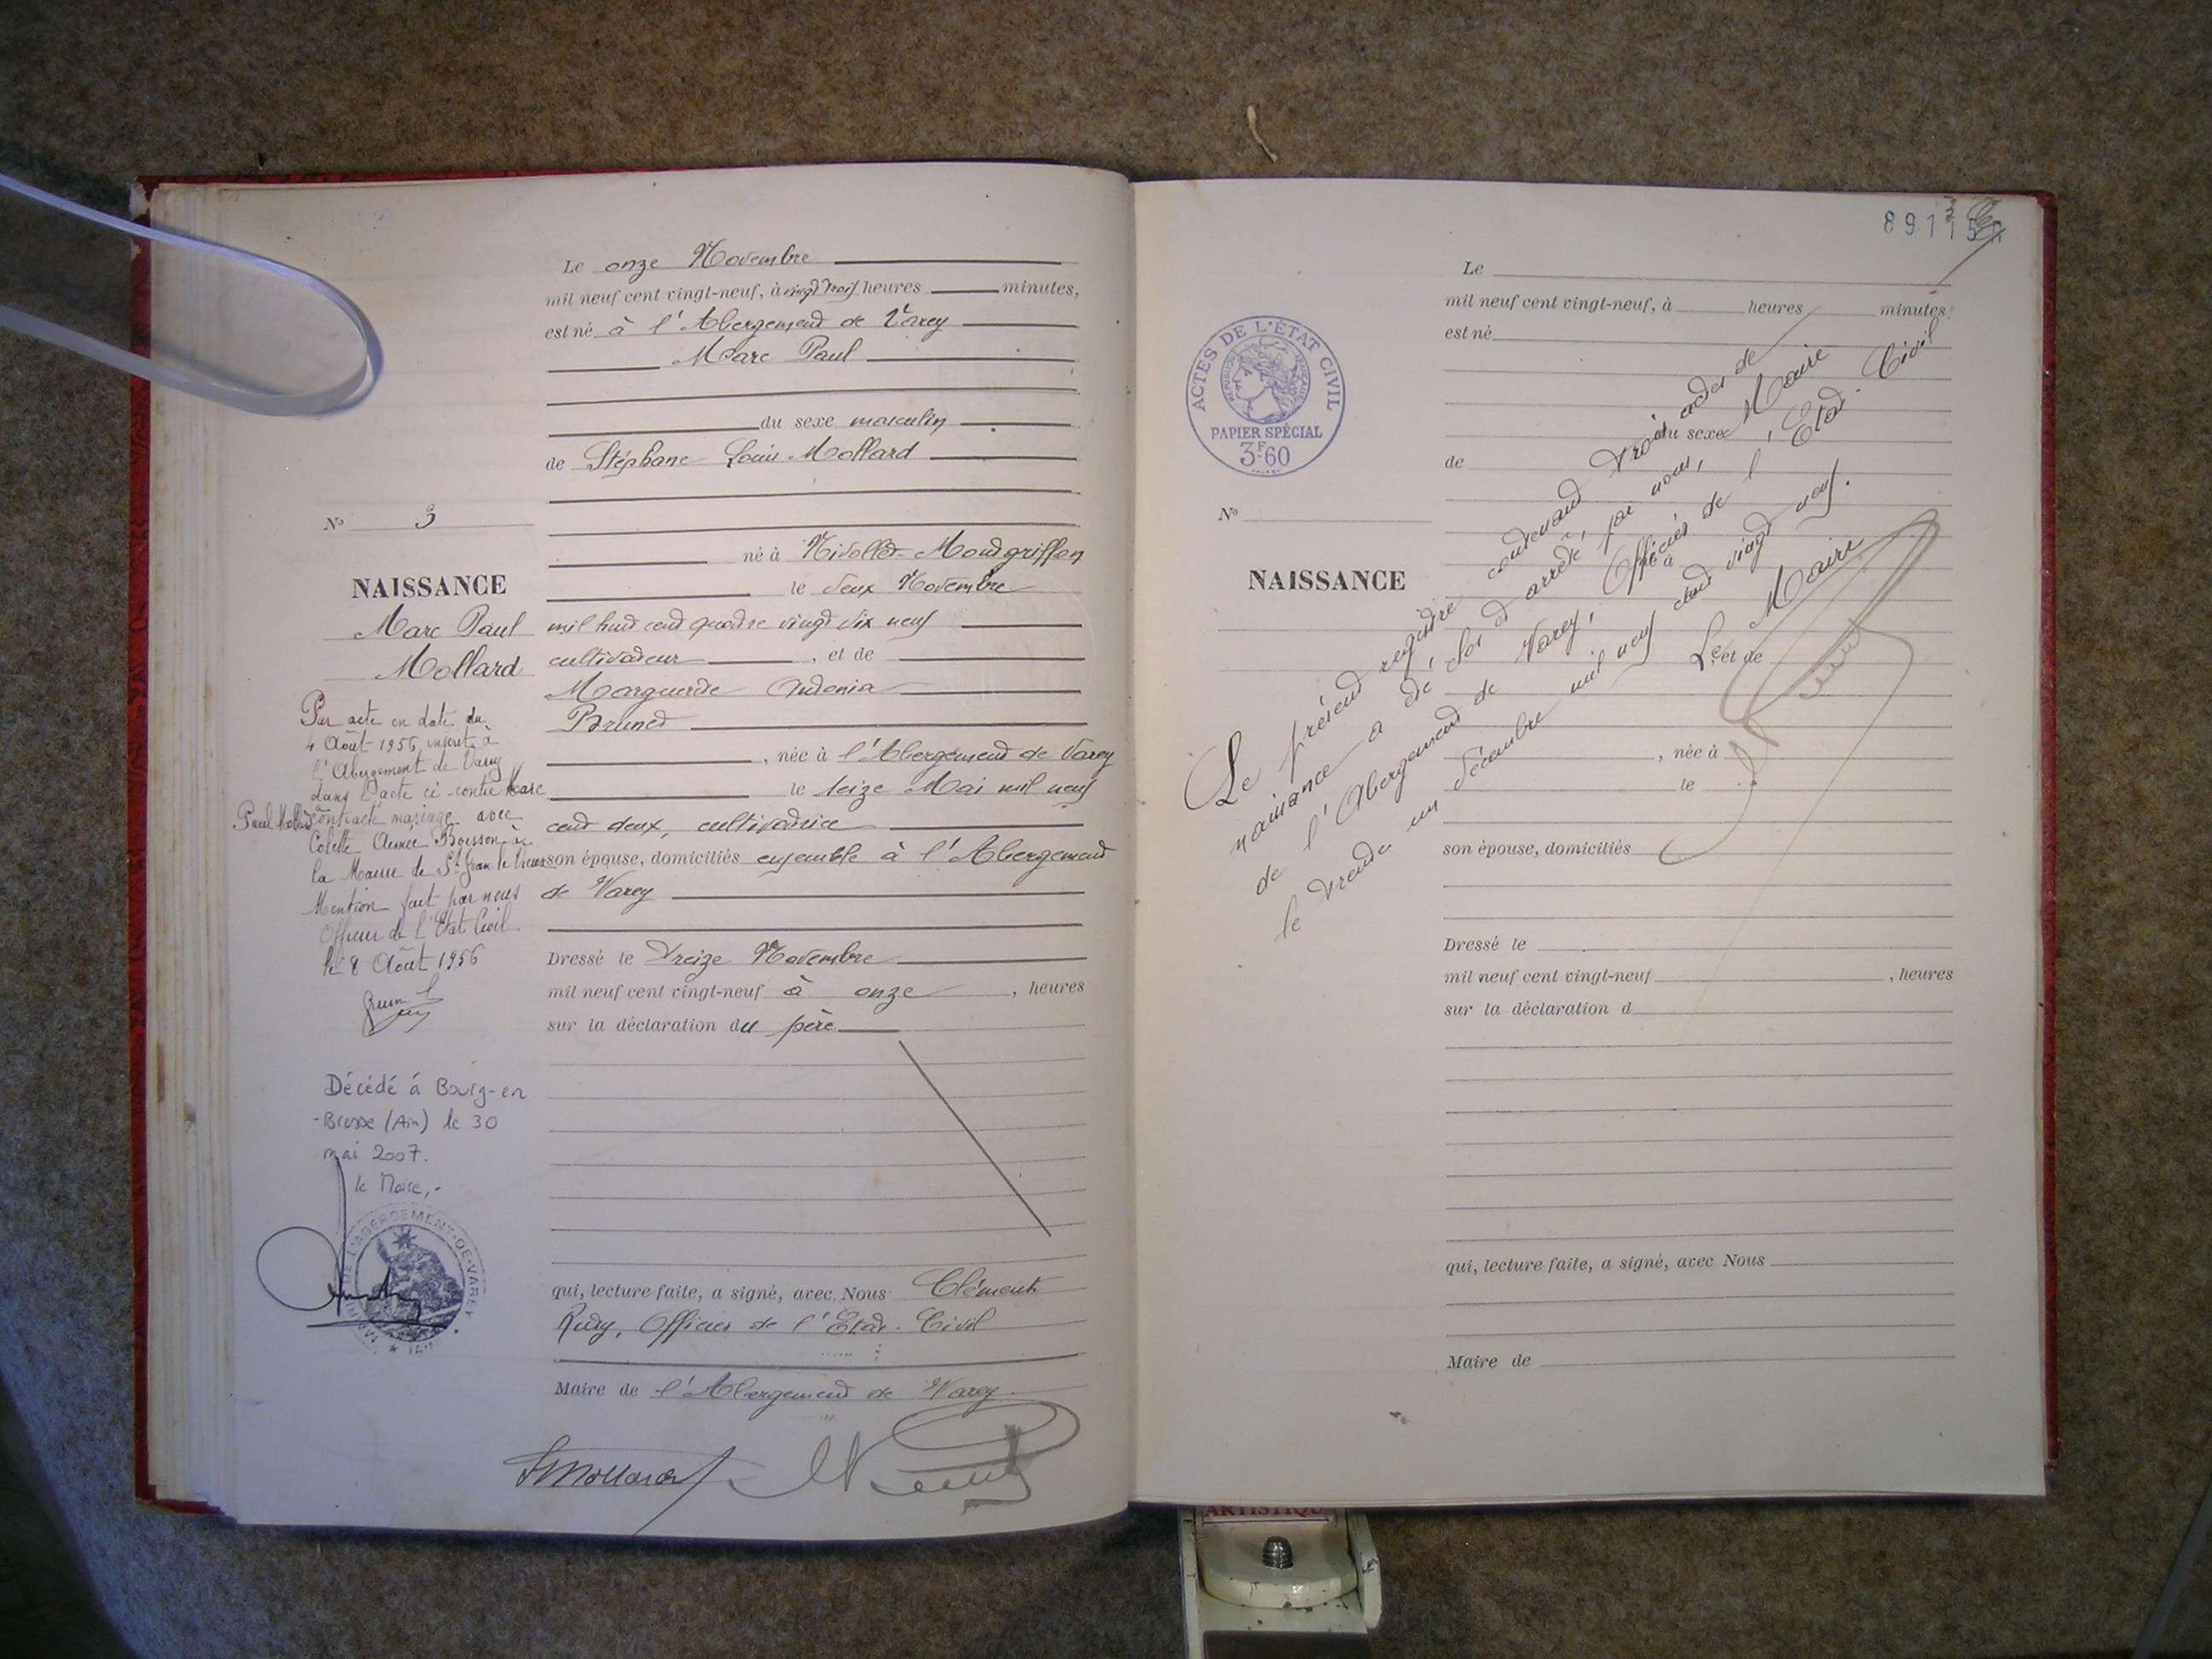 Le onze Novembre
mil neuf cent vingt-neuf, à vingt trois heures minutes,
est né à l'Abergement de Varey
Marc Paul
du sexe masculin
de Stéphane Louis Mollard
né à Nivollet-Montgriffon
le deux Novembre
mil huit cent quatre vingt dix neuf
cultivateur, et de
Marguerite Antonia
Brunet
, née à l'Abergement de Varey
le seize Mai mil neuf
cent deux, cultivatrice
son épouse, domiciliés ensemble à l'Abergement
de Varey
Dressé le treize Novembre
mil neuf cent vingt-neuf à onze, heures
sur la déclaration du père
qui, lecture faite, a signé, avec Nous Clément
Rudy, Officier de l'Etat-Civil
Maire de l'Abergement de Varey
SMollard
N° 3
NAISSANCE
Marc Paul
Mollard
Par acte en date du
4 Août 1956 inscrit à
l'Abergement de Varey
dans l'acte ci-contre Marc
Paul Mollard a contracté mariage avec
Colette Aimée Boisson à
la Mairie de St Jean le Vieux
Mention fait par nous
Officier de l'Etat Civil
le 8 Août 1956
Décédé à Bourg-en
-Bresse (Ain) le 30
mai 2007.
le Maire,-
MAIRIE DE L'ABERGEMENT-DE-VAREY
(AIN)
8911
ACTES DE L'ÉTAT CIVIL
RÉPUBLIQUE FRANÇAISE
PAPIER SPÉCIAL
3F60
Le
mil neuf cent vingt-neuf, à heures minutes,
est né
du sexe
de
N°
né à
NAISSANCE
le
, et de
, née à
le
son épouse, domiciliés
Dressé le
mil neuf cent vingt-neuf, heures
sur la déclaration d
qui, lecture faite, a signé, avec Nous
Maire de
Le présent registre contenant trois actes de
naissance a été clos et arrêté, par nous, Maire
de l'Abergement de Varey, Officier de l'Etat-Civil
le trente un décembre mil neuf cent vingt neuf.
Le Maire
ARTISTIQU